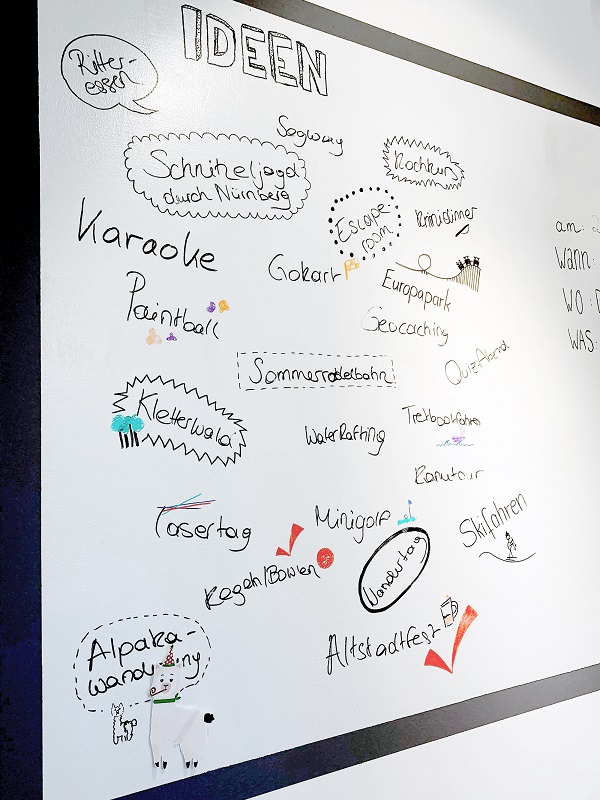 IDEEN
Ritter-
essen
Segway
Schnitzeljagd
durch Nürnberg
Kochkurs
Escape-
room
Krimidinner
Karaoke
Gokart
Europapark
Paintball
Geocaching
Sommerrodelbahn
QuizAbend
Kletterwald
WaterRafting
Tretbootfahren
Kanutour
Lasertag
Minigolf
Skifahren
Kegeln/Bowlen
Wandertag
Altstadtfest
Alpaka-
am:
Wann:
WO:
WAS: